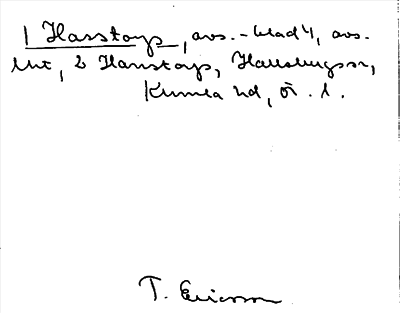 1 Hasstorp, avs. - blad 4, avs.
lht, 2 Hanstorp, Hallsbergs sn,
Kumla hd, ö. l.
T. Ericsson